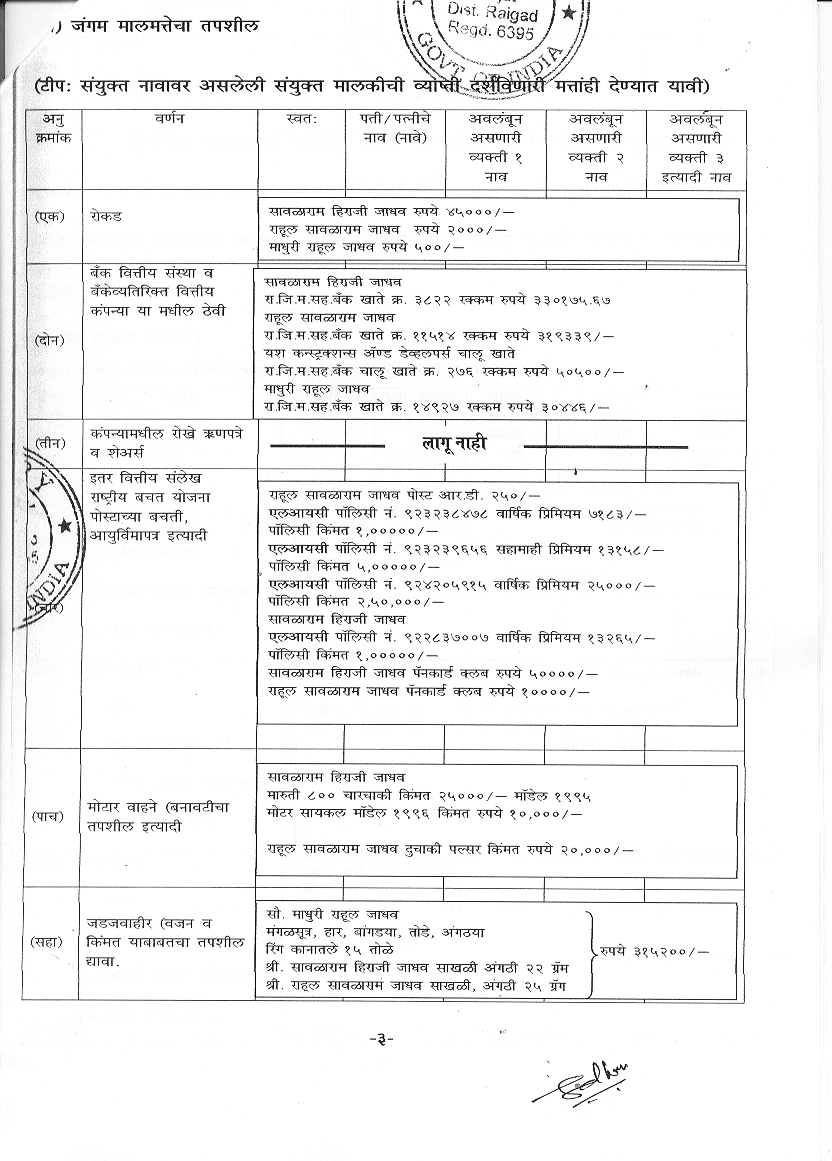 Dist. Raigad
Regd. 6395
GOVT. OF INDIA
) जंगम मालमत्तेचा तपशील
(टीपः संयुक्त नावावर असलेली संयुक्त मालकीची व्याप्ती दर्शविणारी मत्तांही देण्यात यावी)
अनु क्रमांक
वर्णन
स्वतः
पती/पत्नीचे नाव (नावे)
अवलंबून असणारी व्यक्ती १ नाव
अवलंबून असणारी व्यक्ती २ नाव
अवलंबून असणारी व्यक्ती ३ इत्यादी नाव
(एक)
रोकड
सावळाराम हिराजी जाधव रुपये ४५०००/—
राहूल सावळाराम जाधव रुपये २०००/—
माधुरी राहूल जाधव रुपये ५००/—
(दोन)
बँक वित्तीय संस्था व
बँकेव्यतिरिक्त वित्तीय
कंपन्या या मधील ठेवी
सावळाराम हिराजी जाधव
रा.जि.म.सह.बँक खाते क्र. ३८२२ रक्कम रुपये ३३०१७५.६७
राहूल सावळाराम जाधव
रा.जि.म.सह.बँक खाते क्र. ११५१४ रक्कम रुपये ३१९३३९/—
यश कन्स्ट्रक्शन्स अ‍ॅण्ड डेव्हलपर्स चालू खाते
रा.जि.म.सह.बँक चालू खाते क्र. २७६ रक्कम रुपये ५०५००/—
माधुरी राहूल जाधव
रा.जि.म.सह.बँक खाते क्र. १४९२७ रक्कम रुपये ३०४४६/—
(तीन)
कंपन्यामधील रोखे ऋणपत्रे
व शेअर्स
लागू नाही
(चार)
इतर वित्तीय संलेख
राष्ट्रीय बचत योजना
पोस्टाच्या बचती,
आयुर्विमापत्र इत्यादी
राहूल सावळाराम जाधव पोस्ट आर.डी. २५०/—
एलआयसी पॉलिसी नं. ९२३२३८४७८ वार्षिक प्रिमियम ७१८३/—
पॉलिसी किंमत १,०००००/—
एलआयसी पॉलिसी नं. ९२३२३९६५६ सहामाही प्रिमियम १३१५८/—
पॉलिसी किंमत ५,०००००/—
एलआयसी पॉलिसी नं. ९२४२०५९१५ वार्षिक प्रिमियम २५०००/—
पॉलिसी किंमत २,५०,०००/—
सावळाराम हिराजी जाधव
एलआयसी पॉलिसी नं. ९२२८३७००७ वार्षिक प्रिमियम १३२६५/—
पॉलिसी किंमत १,०००००/—
सावळाराम हिराजी जाधव पॅनकार्ड क्लब रुपये ५००००/—
राहूल सावळाराम जाधव पॅनकार्ड क्लब रुपये १००००/—
INDIA
(पाच)
मोटार वाहने (बनावटीचा
तपशील इत्यादी
सावळाराम हिराजी जाधव
मारुती ८०० चारचाकी किंमत २५०००/— मॉडेल १९९५
मोटर सायकल मॉडेल १९९६ किंमत रुपये १०,०००/—
राहूल सावळाराम जाधव दुचाकी पल्सर किंमत रुपये २०,०००/—
(सहा)
जडजवाहीर (वजन व
किंमत याबाबतचा तपशील
द्यावा.
सौ. माधुरी राहूल जाधव
मंगळसूत्र, हार, बांगडया, तोडे, अंगठया
रिंग कानातले १५ तोळे
श्री. सावळाराम हिराजी जाधव साखळी अंगठी २२ ग्रॅम
श्री. राहूल सावळाराम जाधव साखळी, अंगठी २५ ग्रॅग
रुपये ३१५२००/—
-३-